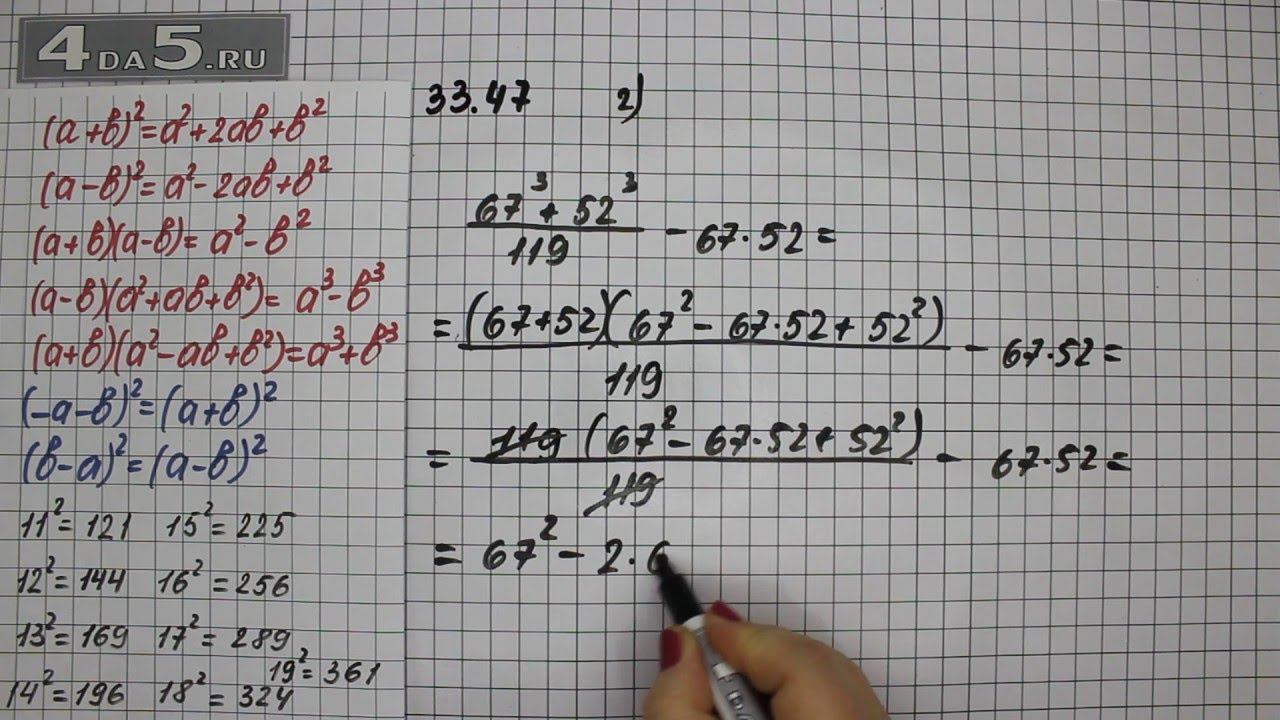 4DA5.RU
(a+b)²=a²+2ab+b²
(a-b)²=a²-2ab+b²
(a+b)(a-b)=a²-b²
(a-b)(a²+ab+b²)=a³-b³
(a+b)(a²-ab+b²)=a³+b³
(-a-b)²=(a+b)²
(b-a)²=(a-b)²
11²=121 15²=225
12²=144 16²=256
13²=169 17²=289
19²=361
14²=196 18²=324
33.47 2)
67³+52³
119
-67·52=
=(67+52)(67²-67·52+52²)
119
-67·52=
=119(67²-67·52+52²)
119
-67·52=
=67²-2·6